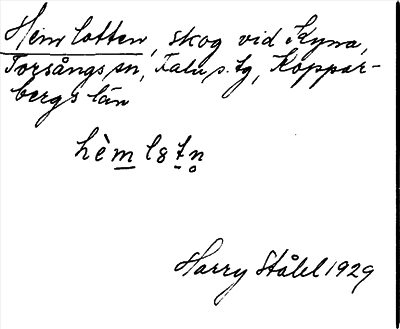 Hemlotten, skog vid Kyna,
Torsångs sn, Falu s. tg, Koppar-
bergs län
hèmlotn̥
Harry Ståhl 1929